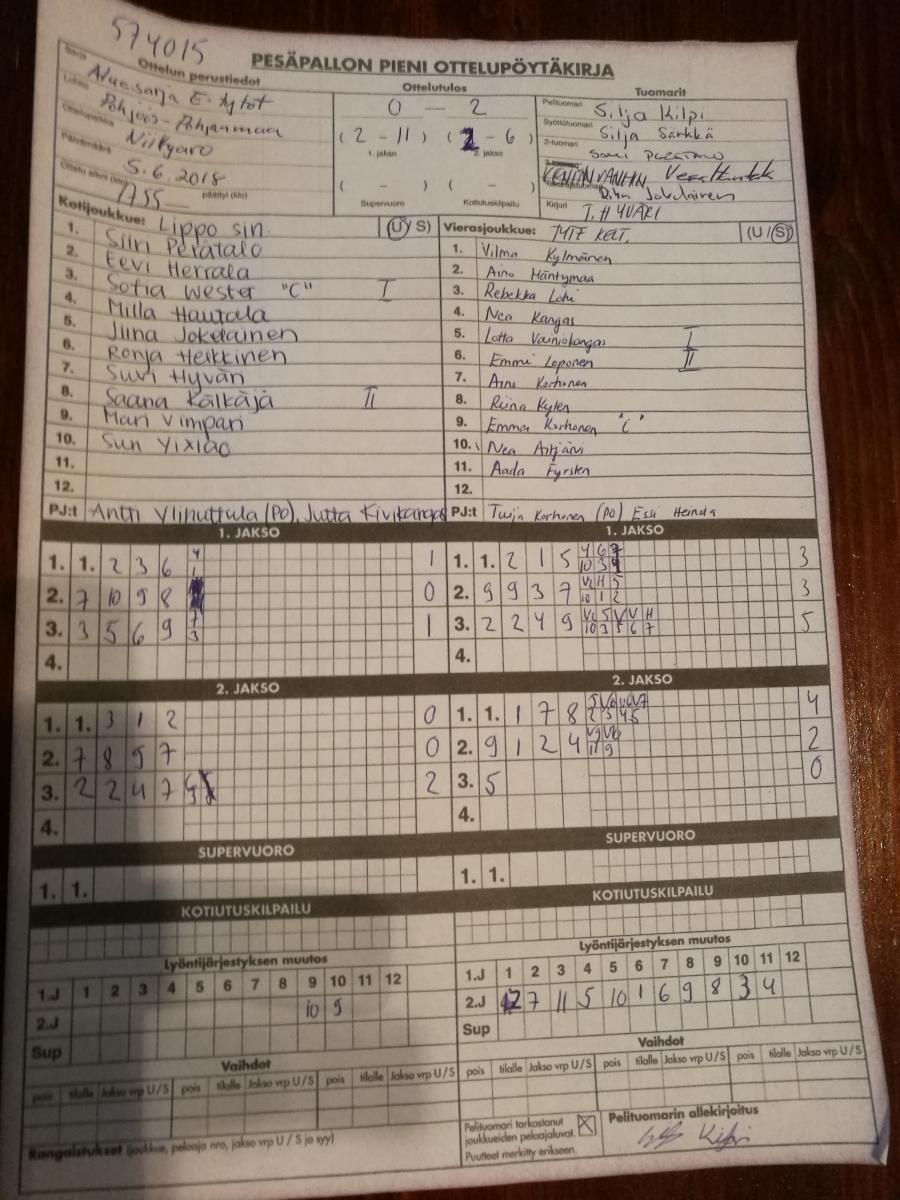 574015
PESÄPALLON PIENI OTTELUPÖYTÄKIRJA
Ottelun perustiedot
Sarja Aluesarja E-tytöt
Lohko Pohjois-Pohjanmaa
Ottelupaikka Niittyaro
Päivämäärä 5.6.2018
Ottelu alkoi (klo) 1755 päättyi (klo)
Ottelutulos
0 - 2
(2 - 11) (2 - 6)
1. jakso 2. jakso
( - ) ( - )
Supervuoro Kotiutuskilpailu
Tuomarit
Pelituomari Silja Kilpi
Syöttötuomari Silja Särkkä
2-tuomari
Jokelainen
Kirjuri T. HYVÄRI
Kotijoukkue: Lippo sin. (U/S)
1. Siiri Perätalo
2. Eevi Herrala
3. Sofia Wester "C" I
4. Milla Hautala
5. Jiina Jokelainen
6. Ronja Heikkinen
7. Suvi Hyvän
8. Saana Kälkäjä II
9. Mari Vimpari
10. Sun Yixiao
11.
12.
PJ:t Antti Ylinuttula (PO), Jutta Kivikangas
Vierasjoukkue: MTE KELT. (U/S)
1. Vilma Kylmänen
2. Aino Häntymaa
3. Rebekka Lohi
4. Nea Kangas
5. Lotta Vainiokangas I
6. Emmi Leponen II
7. Aino Korhonen
8. Riina Kylen
9. Emma Korhonen "C"
10. Nea Artjärvi
11. Aada Fyrsten
12.
PJ:t Tuija Korhonen (PO) Essi Heinola
1. JAKSO
1. 1. 2 3 6 4 1 1
2. 7 10 9 8 0
3. 3 5 6 9 7 3 1
4.
1. JAKSO
1. 1. 2 1 5 4 6 7 10 3 4 3
2. 9 9 3 7 V2 H 5 10 1 2 3
3. 2 2 4 9 VL 5 V V H 10 3 5 6 7 5
4.
2. JAKSO
1. 1. 3 1 2 0
2. 7 8 9 7 0
3. 2 2 4 7 2
4.
2. JAKSO
1. 1. 1 7 8 5 V6 V6 V7 2 3 4 5 4
2. 9 1 2 4 V9 V6 11 9 2
3. 5 0
4.
SUPERVUORO
1. 1.
SUPERVUORO
1. 1.
KOTIUTUSKILPAILU
KOTIUTUSKILPAILU
Lyöntijärjestyksen muutos
1.J 1 2 3 4 5 6 7 8 9 10 11 12
2.J 10 9
Sup
Lyöntijärjestyksen muutos
1.J 1 2 3 4 5 6 7 8 9 10 11 12
2.J 2 7 11 5 10 1 6 9 8 3 4
Sup
Vaihdot
pois tilalle Jakso vrp U/S pois tilalle Jakso vrp U/S pois tilalle Jakso vrp U/S
Vaihdot
pois tilalle Jakso vrp U/S pois tilalle Jakso vrp U/S pois tilalle Jakso vrp U/S
Rangaistukset (joukkue, pelaaja nro, jakso vrp U / S ja syy)
Pelituomari tarkastanut
joukkueiden pelaajaluvat.
Puutteet merkitty erikseen.
Pelituomarin allekirjoitus
Kilpi